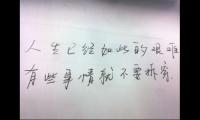 人生已经如此的艰难
有些事情就不要拆穿.